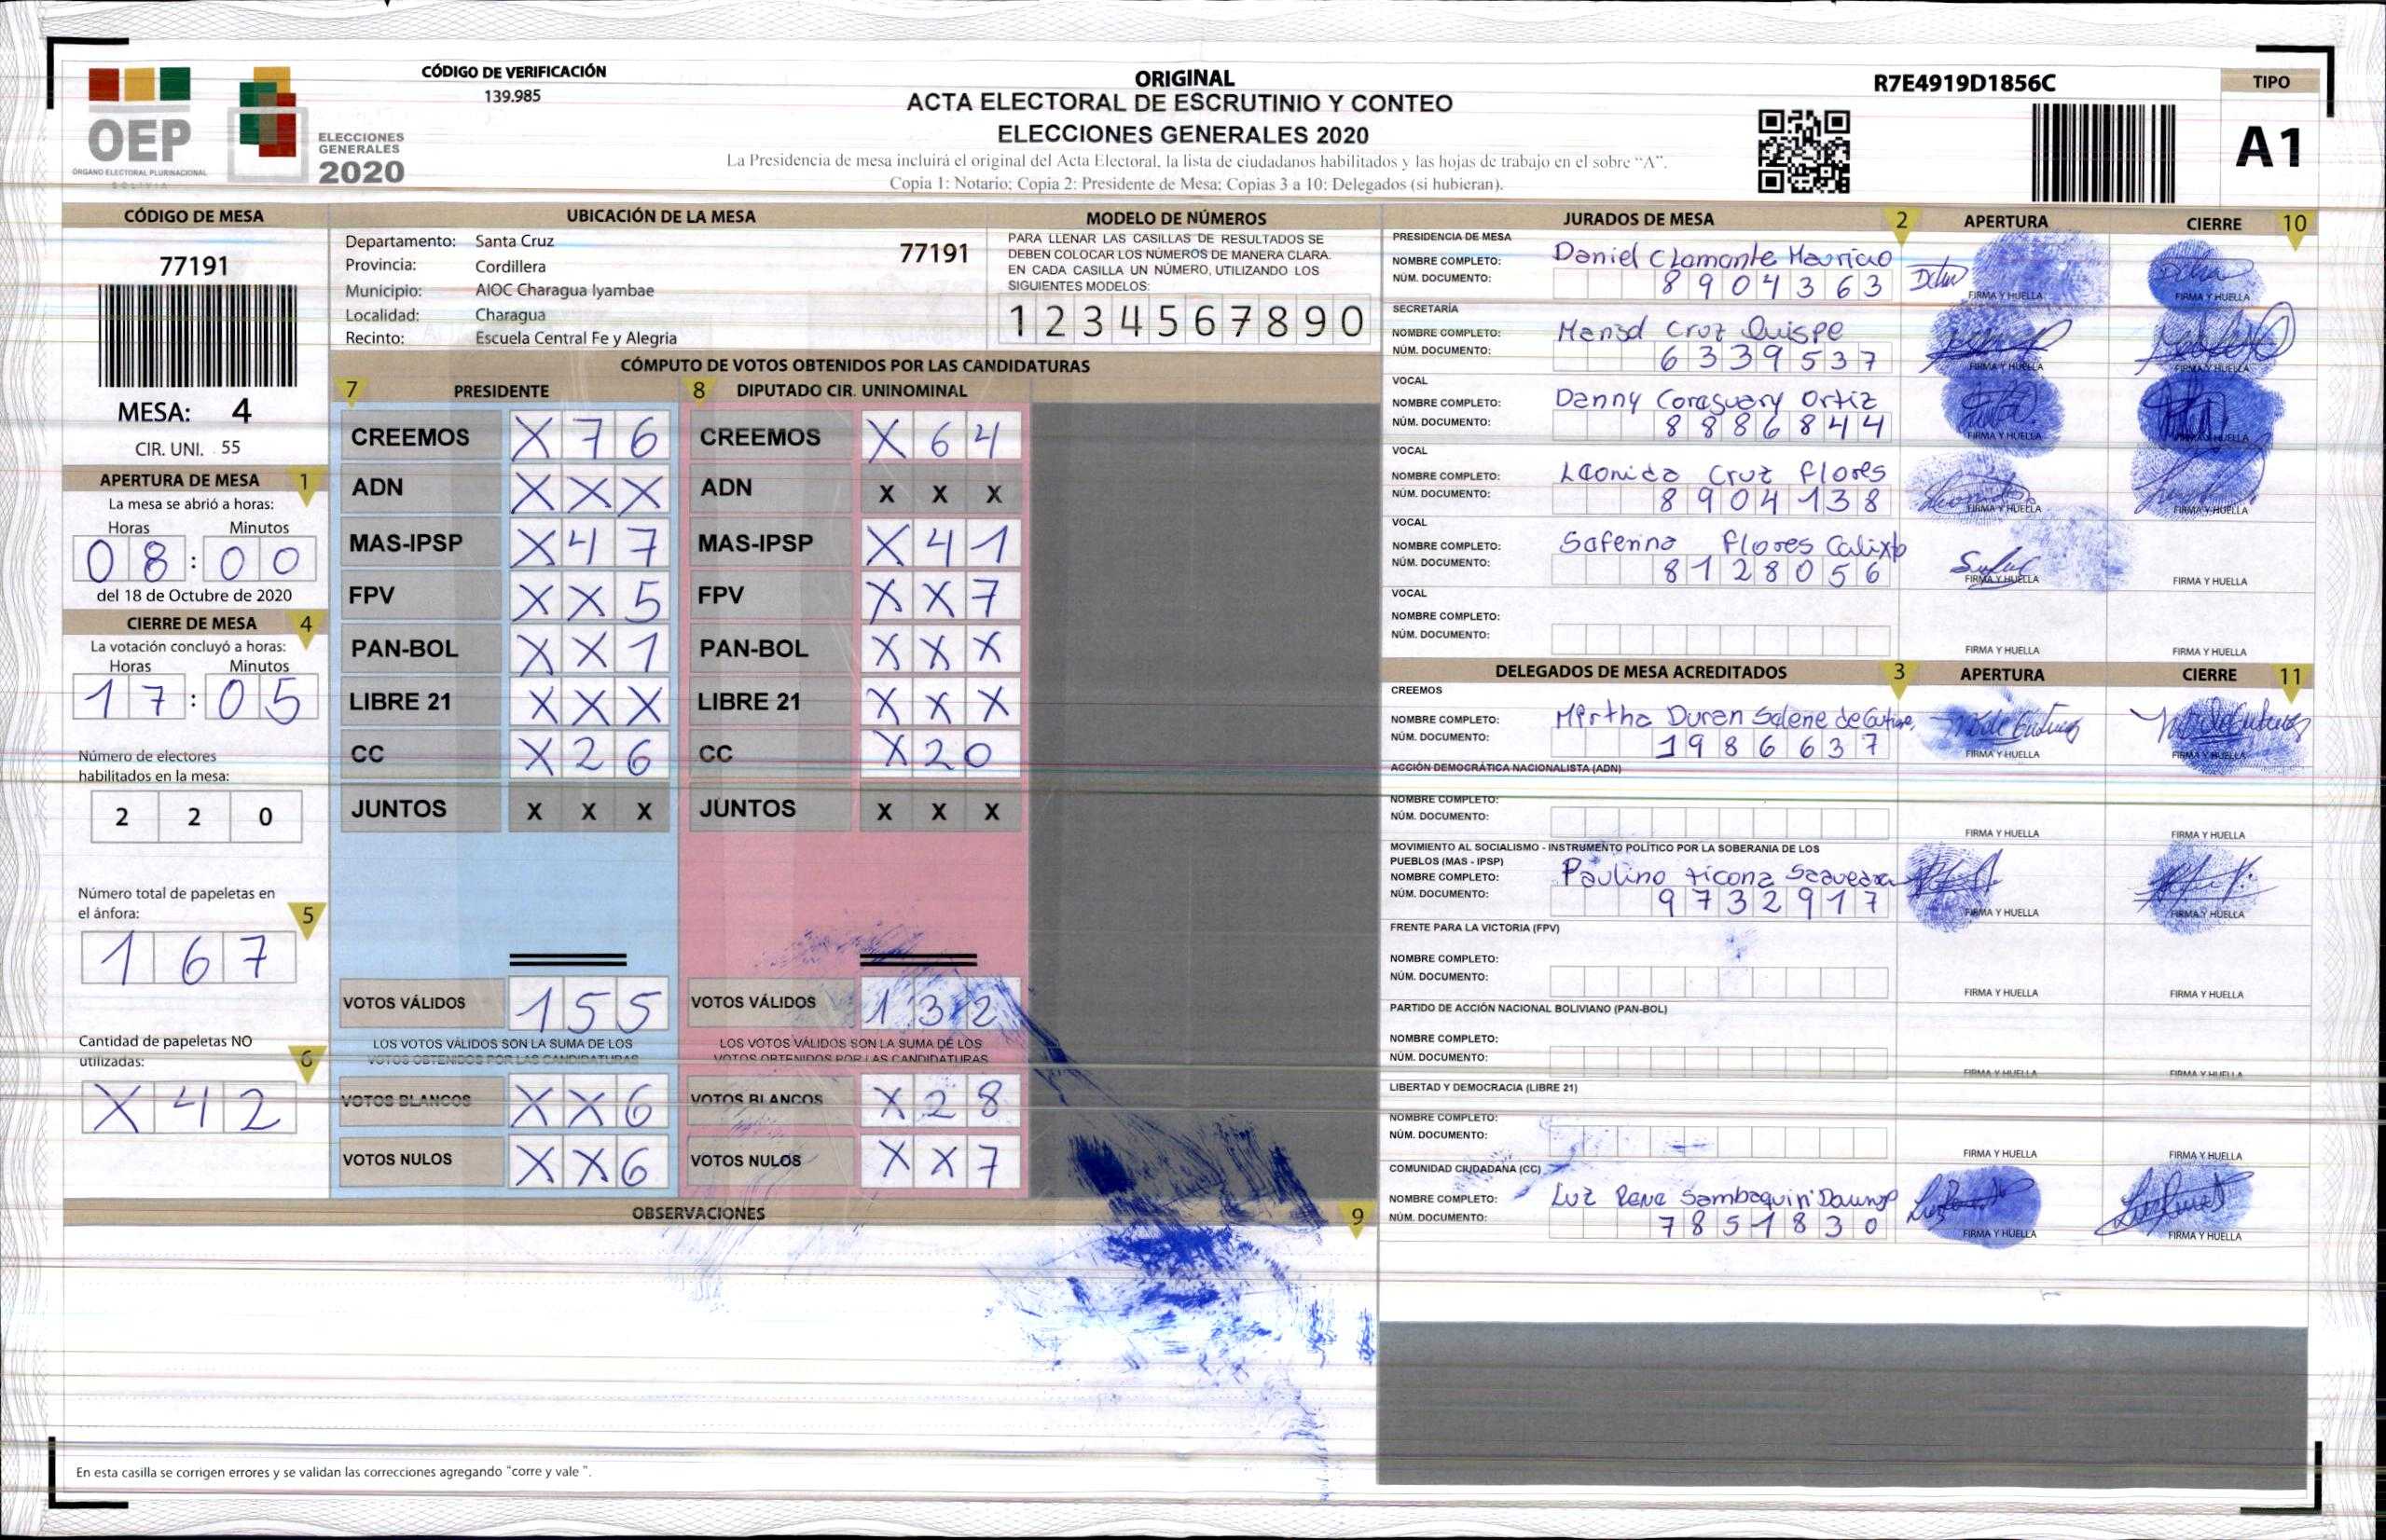 OEP
ÓRGANO ELECTORAL PLURINACIONAL
BOLIVIA
ELECCIONES
GENERALES
2020
CÓDIGO DE VERIFICACIÓN
139.985
ORIGINAL
ACTA ELECTORAL DE ESCRUTINIO Y CONTEO
ELECCIONES GENERALES 2020
La Presidencia de mesa incluirá el original del Acta Electoral, la lista de ciudadanos habilitados y las hojas de trabajo en el sobre “A”.
Copia 1: Notario; Copia 2: Presidente de Mesa; Copias 3 a 10: Delegados (si hubieran).
R7E4919D1856C
TIPO
A1
CÓDIGO DE MESA
77191
MESA: 4
CIR. UNI. 55
APERTURA DE MESA 1
La mesa se abrió a horas:
Horas Minutos
08:00
del 18 de Octubre de 2020
CIERRE DE MESA 4
La votación concluyó a horas:
Horas Minutos
17:05
Número de electores
habilitados en la mesa:
2 2 0
Número total de papeletas en
el ánfora: 5
1 6 7
Cantidad de papeletas NO
utilizadas: 6
X 4 2
UBICACIÓN DE LA MESA
Departamento: Santa Cruz
77191
Provincia: Cordillera
Municipio: AIOC Charagua Iyambae
Localidad: Charagua
Recinto: Escuela Central Fe y Alegria
MODELO DE NÚMEROS
PARA LLENAR LAS CASILLAS DE RESULTADOS SE
DEBEN COLOCAR LOS NÚMEROS DE MANERA CLARA.
EN CADA CASILLA UN NÚMERO, UTILIZANDO LOS
SIGUIENTES MODELOS:
1 2 3 4 5 6 7 8 9 0
CÓMPUTO DE VOTOS OBTENIDOS POR LAS CANDIDATURAS
7 PRESIDENTE 8 DIPUTADO CIR. UNINOMINAL
CREEMOS X 7 6 CREEMOS X 6 4
ADN X X X ADN X X X
MAS-IPSP X 4 7 MAS-IPSP X 4 1
FPV X X 5 FPV X X 7
PAN-BOL X X 1 PAN-BOL X X X
LIBRE 21 X X X LIBRE 21 X X X
CC X 2 6 CC X 2 0
JUNTOS X X X JUNTOS X X X
VOTOS VÁLIDOS 1 5 5 VOTOS VÁLIDOS 1 3 2
LOS VOTOS VÁLIDOS SON LA SUMA DE LOS LOS VOTOS VÁLIDOS SON LA SUMA DE LOS
VOTOS OBTENIDOS POR LAS CANDIDATURAS VOTOS OBTENIDOS POR LAS CANDIDATURAS
VOTOS BLANCOS X X 6 VOTOS BLANCOS X 2 8
VOTOS NULOS X X 6 VOTOS NULOS X X 7
OBSERVACIONES 9
En esta casilla se corrigen errores y se validan las correcciones agregando “corre y vale ”.
JURADOS DE MESA 2 APERTURA CIERRE 10
PRESIDENCIA DE MESA
NOMBRE COMPLETO: Daniel Clamante Mauricio
NÚM. DOCUMENTO: 8904363
FIRMA Y HUELLA FIRMA Y HUELLA
SECRETARÍA
NOMBRE COMPLETO: Cruz Quispe
NÚM. DOCUMENTO: 6339537
FIRMA Y HUELLA FIRMA Y HUELLA
VOCAL
NOMBRE COMPLETO: Danny Ortiz
NÚM. DOCUMENTO: 8886844
FIRMA Y HUELLA FIRMA Y HUELLA
VOCAL
NOMBRE COMPLETO: Leonida Cruz Flores
NÚM. DOCUMENTO: 8904138
FIRMA Y HUELLA FIRMA Y HUELLA
VOCAL
NOMBRE COMPLETO: Saferina Flores Calixto
NÚM. DOCUMENTO: 8128056
FIRMA Y HUELLA FIRMA Y HUELLA
VOCAL
NOMBRE COMPLETO:
NÚM. DOCUMENTO:
FIRMA Y HUELLA FIRMA Y HUELLA
DELEGADOS DE MESA ACREDITADOS 3 APERTURA CIERRE 11
CREEMOS
NOMBRE COMPLETO: Mirtha Duran
NÚM. DOCUMENTO: 1986637
FIRMA Y HUELLA FIRMA Y HUELLA
ACCIÓN DEMOCRÁTICA NACIONALISTA (ADN)
NOMBRE COMPLETO:
NÚM. DOCUMENTO:
FIRMA Y HUELLA FIRMA Y HUELLA
MOVIMIENTO AL SOCIALISMO - INSTRUMENTO POLÍTICO POR LA SOBERANIA DE LOS
PUEBLOS (MAS - IPSP)
NOMBRE COMPLETO: Paulino ticona Saavedra
NÚM. DOCUMENTO: 9732917
FIRMA Y HUELLA FIRMA Y HUELLA
FRENTE PARA LA VICTORIA (FPV)
NOMBRE COMPLETO:
NÚM. DOCUMENTO:
FIRMA Y HUELLA FIRMA Y HUELLA
PARTIDO DE ACCIÓN NACIONAL BOLIVIANO (PAN-BOL)
NOMBRE COMPLETO:
NÚM. DOCUMENTO:
FIRMA Y HUELLA FIRMA Y HUELLA
LIBERTAD Y DEMOCRACIA (LIBRE 21)
NOMBRE COMPLETO:
NÚM. DOCUMENTO:
FIRMA Y HUELLA FIRMA Y HUELLA
COMUNIDAD CIUDADANA (CC)
NOMBRE COMPLETO: Luz Rene
NÚM. DOCUMENTO: 7851830
FIRMA Y HUELLA FIRMA Y HUELLA